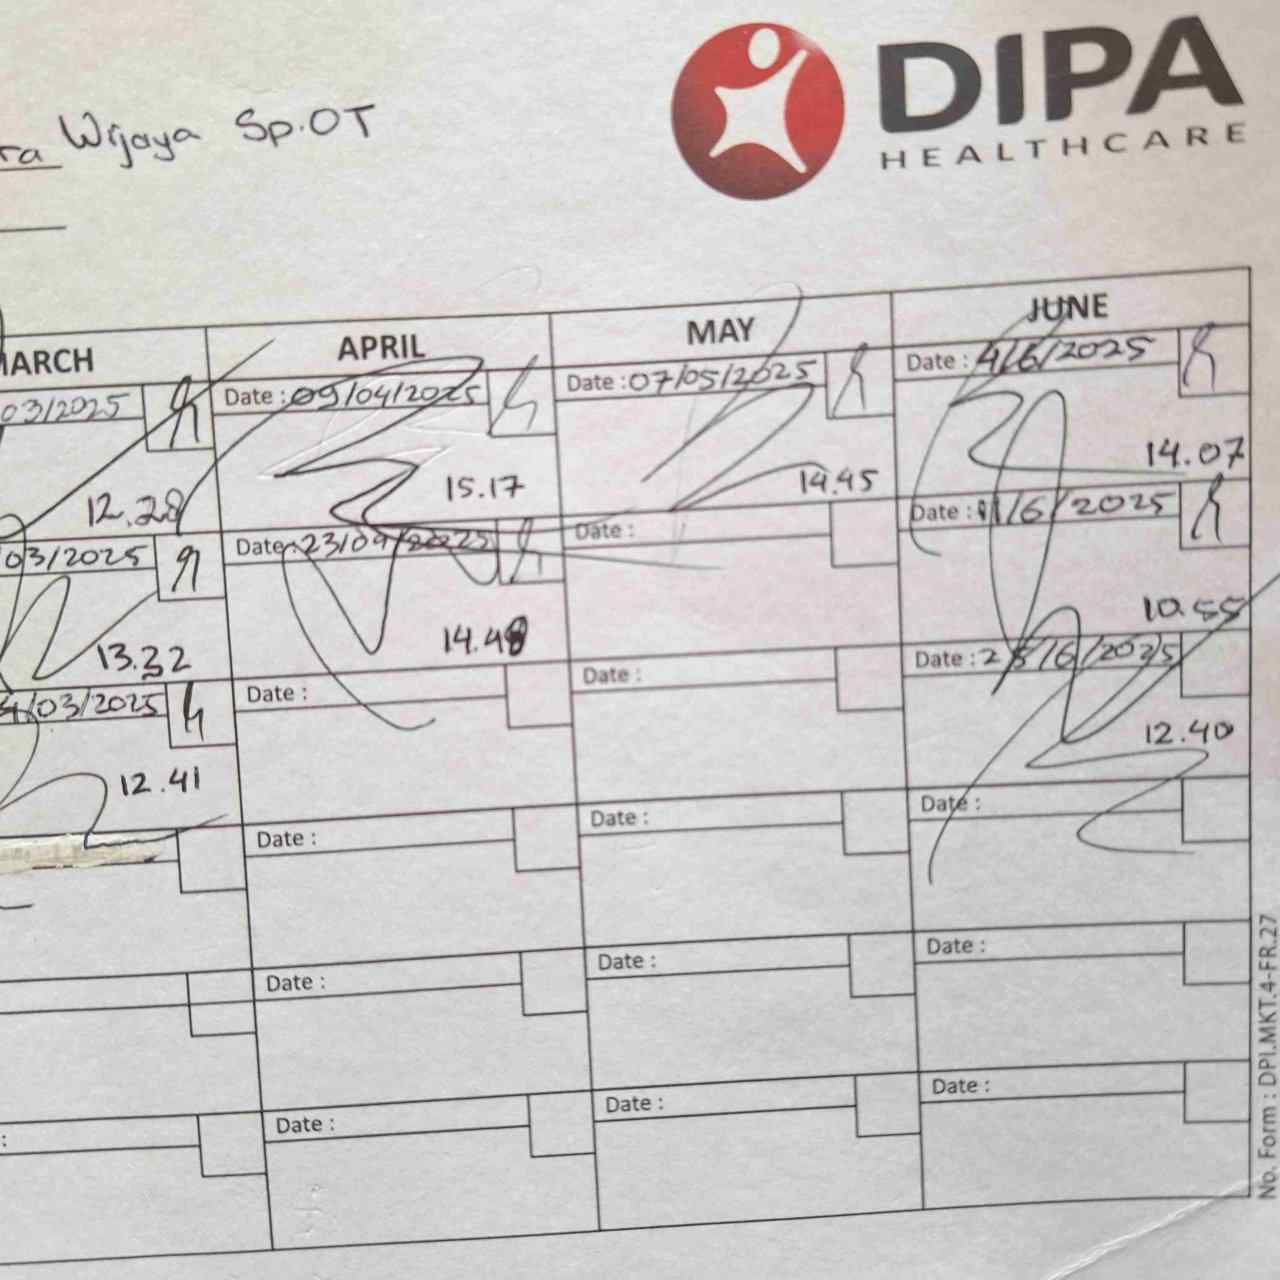 DIPA
HEALTHCARE
ra Wijaya Sp.OT
MARCH APRIL MAY JUNE
03/2025 Date : 09/04/2025 Date : 07/05/2025 Date : 4/6/2025
12.28 15.17 14.45 14.07
03/2025 Date : 23/04/2025 Date : Date : 11/6/2025
13.32 14.48 10.55
4/03/2025 Date : Date : Date : 25/6/2025
12.41 12.40
Date : Date : Date :
Date : Date : Date :
: Date : Date : Date :
No. Form : DPI.MKT.4-FR.27